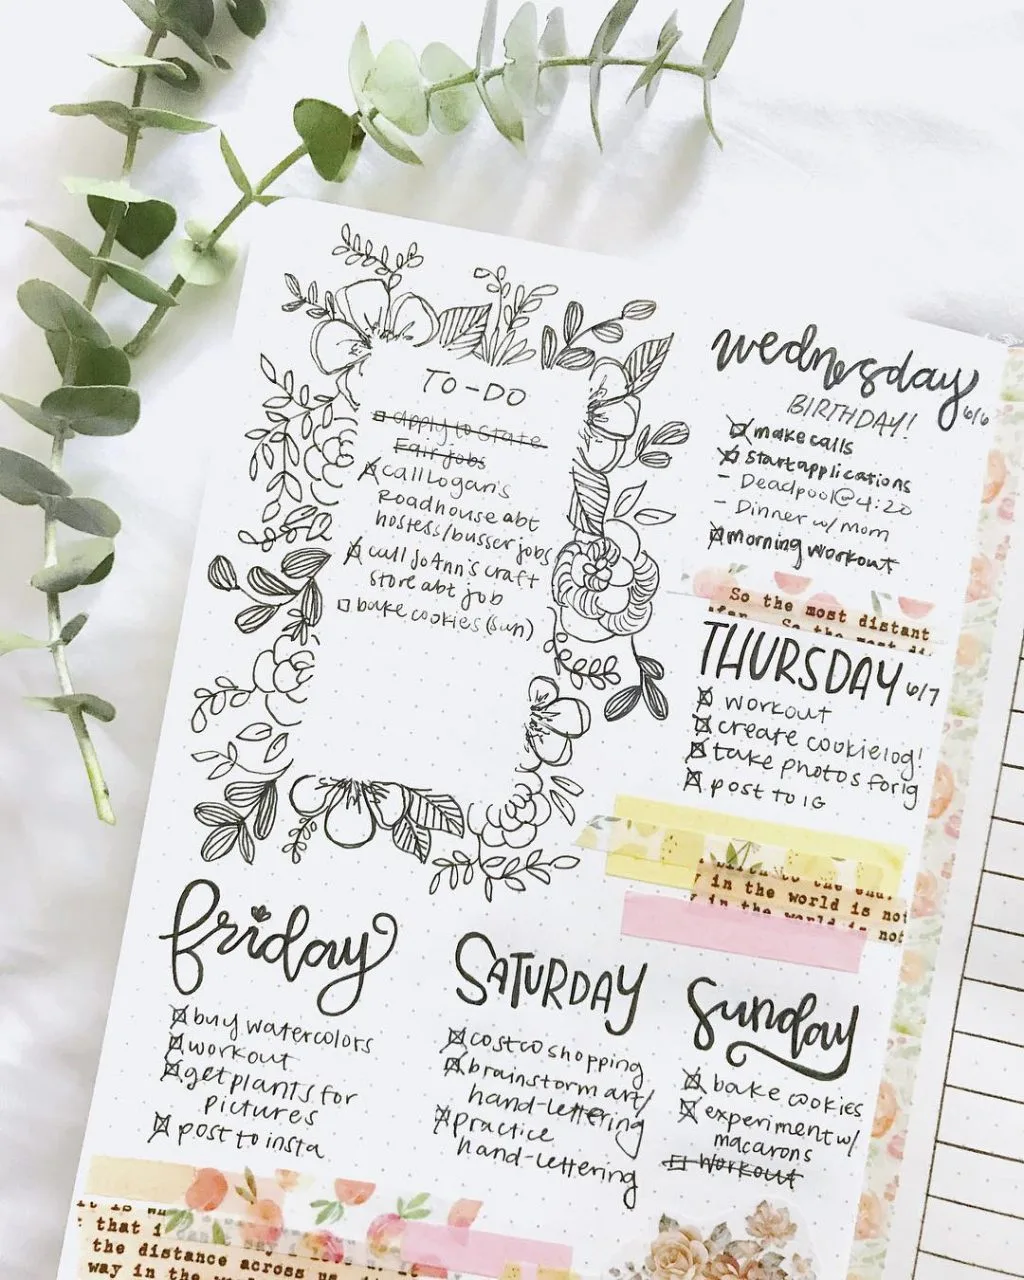 TO-DO
apply to State
Fair jobs
call Logan's
Roadhouse abt
hostess/busser jobs
call JoAnn's craft
store abt job
bake cookies (sun)
wednesday
6/6
BIRTHDAY!
make calls
start applications
- Deadpool @ 4:20
- Dinner w/ mom
morning workout
So the most distant
So the most di
THURSDAY 6/7
workout
create cookielog!
take photos for ig
post to IG
birth to the end.
y in the world is not
y in the world is not
friday
buy watercolors
workout
get plants for
pictures
post to insta
SATURDAY
costco shopping
brainstorm art/
hand-lettering
practice
hand-lettering
Sunday
bake cookies
experiment w/
macarons
workout
that i
the distance across
way in the